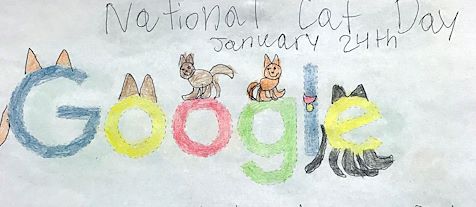 National Cat Day
January 24th
Google